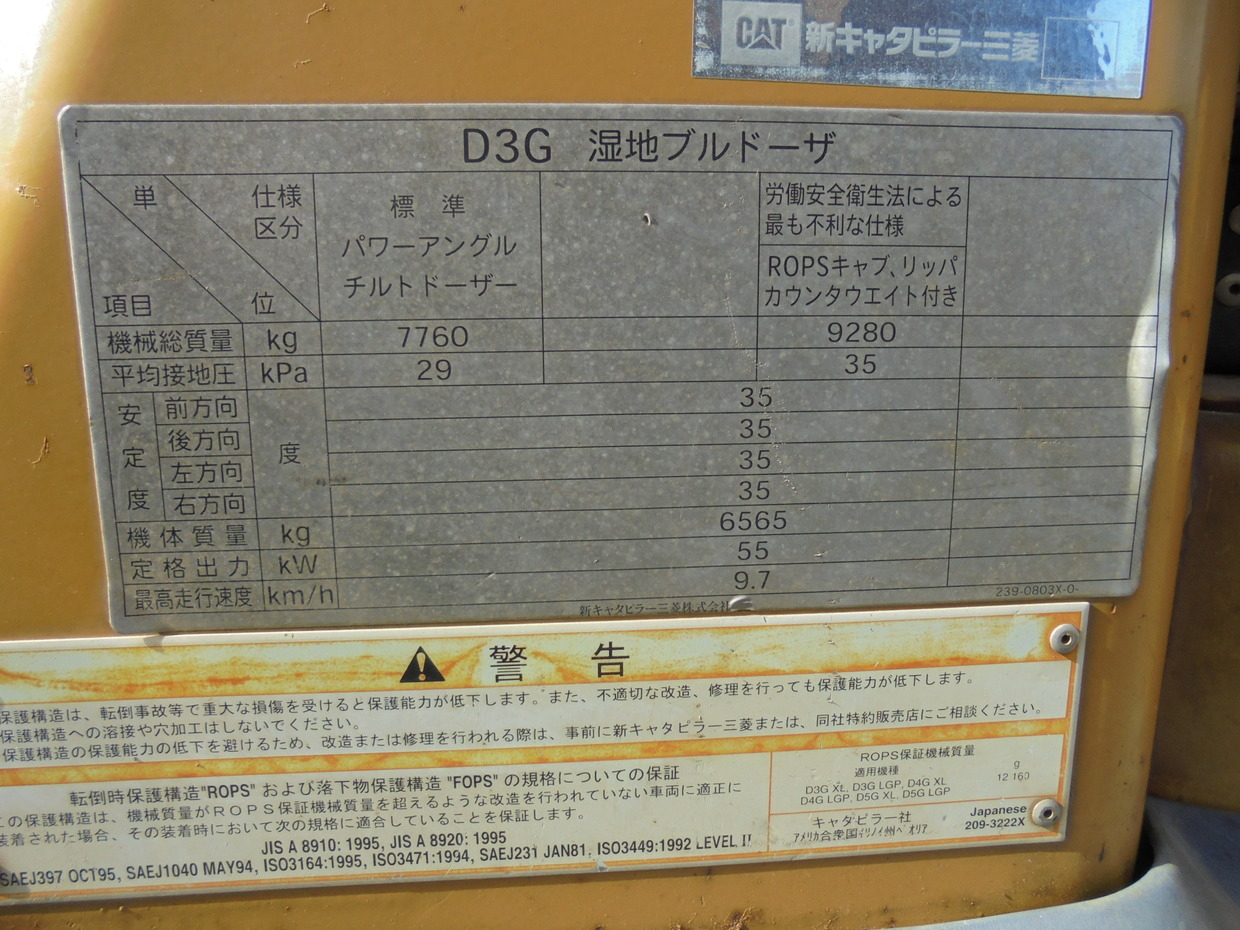 CAT 新キャタピラー三菱
D3G 湿地ブルドーザ
単 仕様
区分
項目 位
標 準
パワーアングル
チルトドーザー
労働安全衛生法による
最も不利な仕様
ROPSキャブ、リッパ
カウンタウエイト付き
機械総質量 kg 7760 9280
平均接地圧 kPa 29 35
安定度 度
前方向 35
後方向 35
左方向 35
右方向 35
機体質量 kg 6565
定格出力 kW 55
最高走行速度 km/h 9.7
新キャタピラー三菱株式会社
239-0803X-0
警 告
保護構造は、転倒事故等で重大な損傷を受けると保護能力が低下します。また、不適切な改造、修理を行っても保護能力が低下します。
保護構造への溶接や穴加工はしないでください。
保護構造の保護能力の低下を避けるため、改造または修理を行われる際は、事前に新キャタピラー三菱または、同社特約販売店にご相談ください。
転倒時保護構造"ROPS" および落下物保護構造 "FOPS" の規格についての保証
この保護構造は、機械質量がROPS保証機械質量を超えるような改造を行われていない車両に適正に
装着された場合、その装着時において次の規格に適合していることを保証します。
JIS A 8910: 1995, JIS A 8920: 1995
SAEJ397 OCT95, SAEJ1040 MAY94, ISO3164:1995, ISO3471:1994, SAEJ231 JAN81, ISO3449:1992 LEVEL II
ROPS保証機械質量
適用機種 g
D3G XL, D3G LGP, D4G XL 12 160
D4G LGP, D5G XL, D5G LGP
キャタピラー社 Japanese
アメリカ合衆国イリノイ州ペオリア 209-3222X